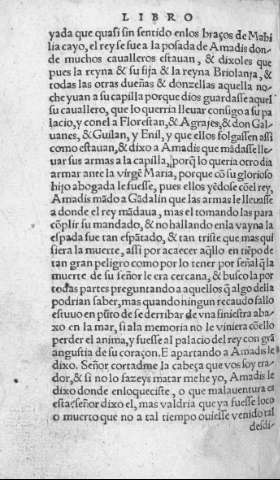 LIBRO
yada que quasi sin sentido enlos braços de Mabi
lia cayo, el rey se fue a la posada de Amadis don-
de muchos caualleros estauan, & dixoles que
pues la reyna & su fija & la reyna Briolanja, &
todas las otras dueñas & donzellas aquella no-
che yuan a su capilla porque dios guardasse aquel
su cauallero, que lo querria lleuar consigo a su pa
lacio, y conel a Florestan, & Agrajes, & don Gal-
uanes, & Guilan, y Enil, y que ellos folgassen assi
como estauan, & dixo a Amadis que mādasse lle-
uar sus armas a la capilla, porq̄ lo queria otro dia
armar ante la virgē Maria, porque cō su glorioso
hijo abogada le fuesse, pues ellos yēdose cōel rey,
Amadis mādo a Gādalin que las armas le lleuasse
a donde el rey mādaua, mas el tomando las para
cōplir su mandado, & no hallando enla vayna la
espada fue tan espātado, & tan triste que mas qui
siera la muerte, assi por acaecer aq̄llo en tiēpo de
tan gran peligro como por lo tener por señal q̄ la
muerte de su señor le era cercana, & busco la por
todas partes preguntando a aquellos q̄ algo della
podrian saber, mas quando ningun recaudo fallo
estuuo en pūto de se derribar de vna siniestra aba
xo en la mar, si ala memoria no le viniera cōello
perder el anima, y fuesse al palacio del rey con grā
angustia de su coraçon. E apartando a Amadis le
dixo. Señor cortadme la cabeça que vos soy tray-
dor, & si no lo fazeys matar me he yo, Amadis le
dixo donde enloqueciste, o que malauentura es
esta, señor dixo el, mas valdria que ya fuesse loco
o muerto que no a tal tiempo ouiesse venido tal
desdi-